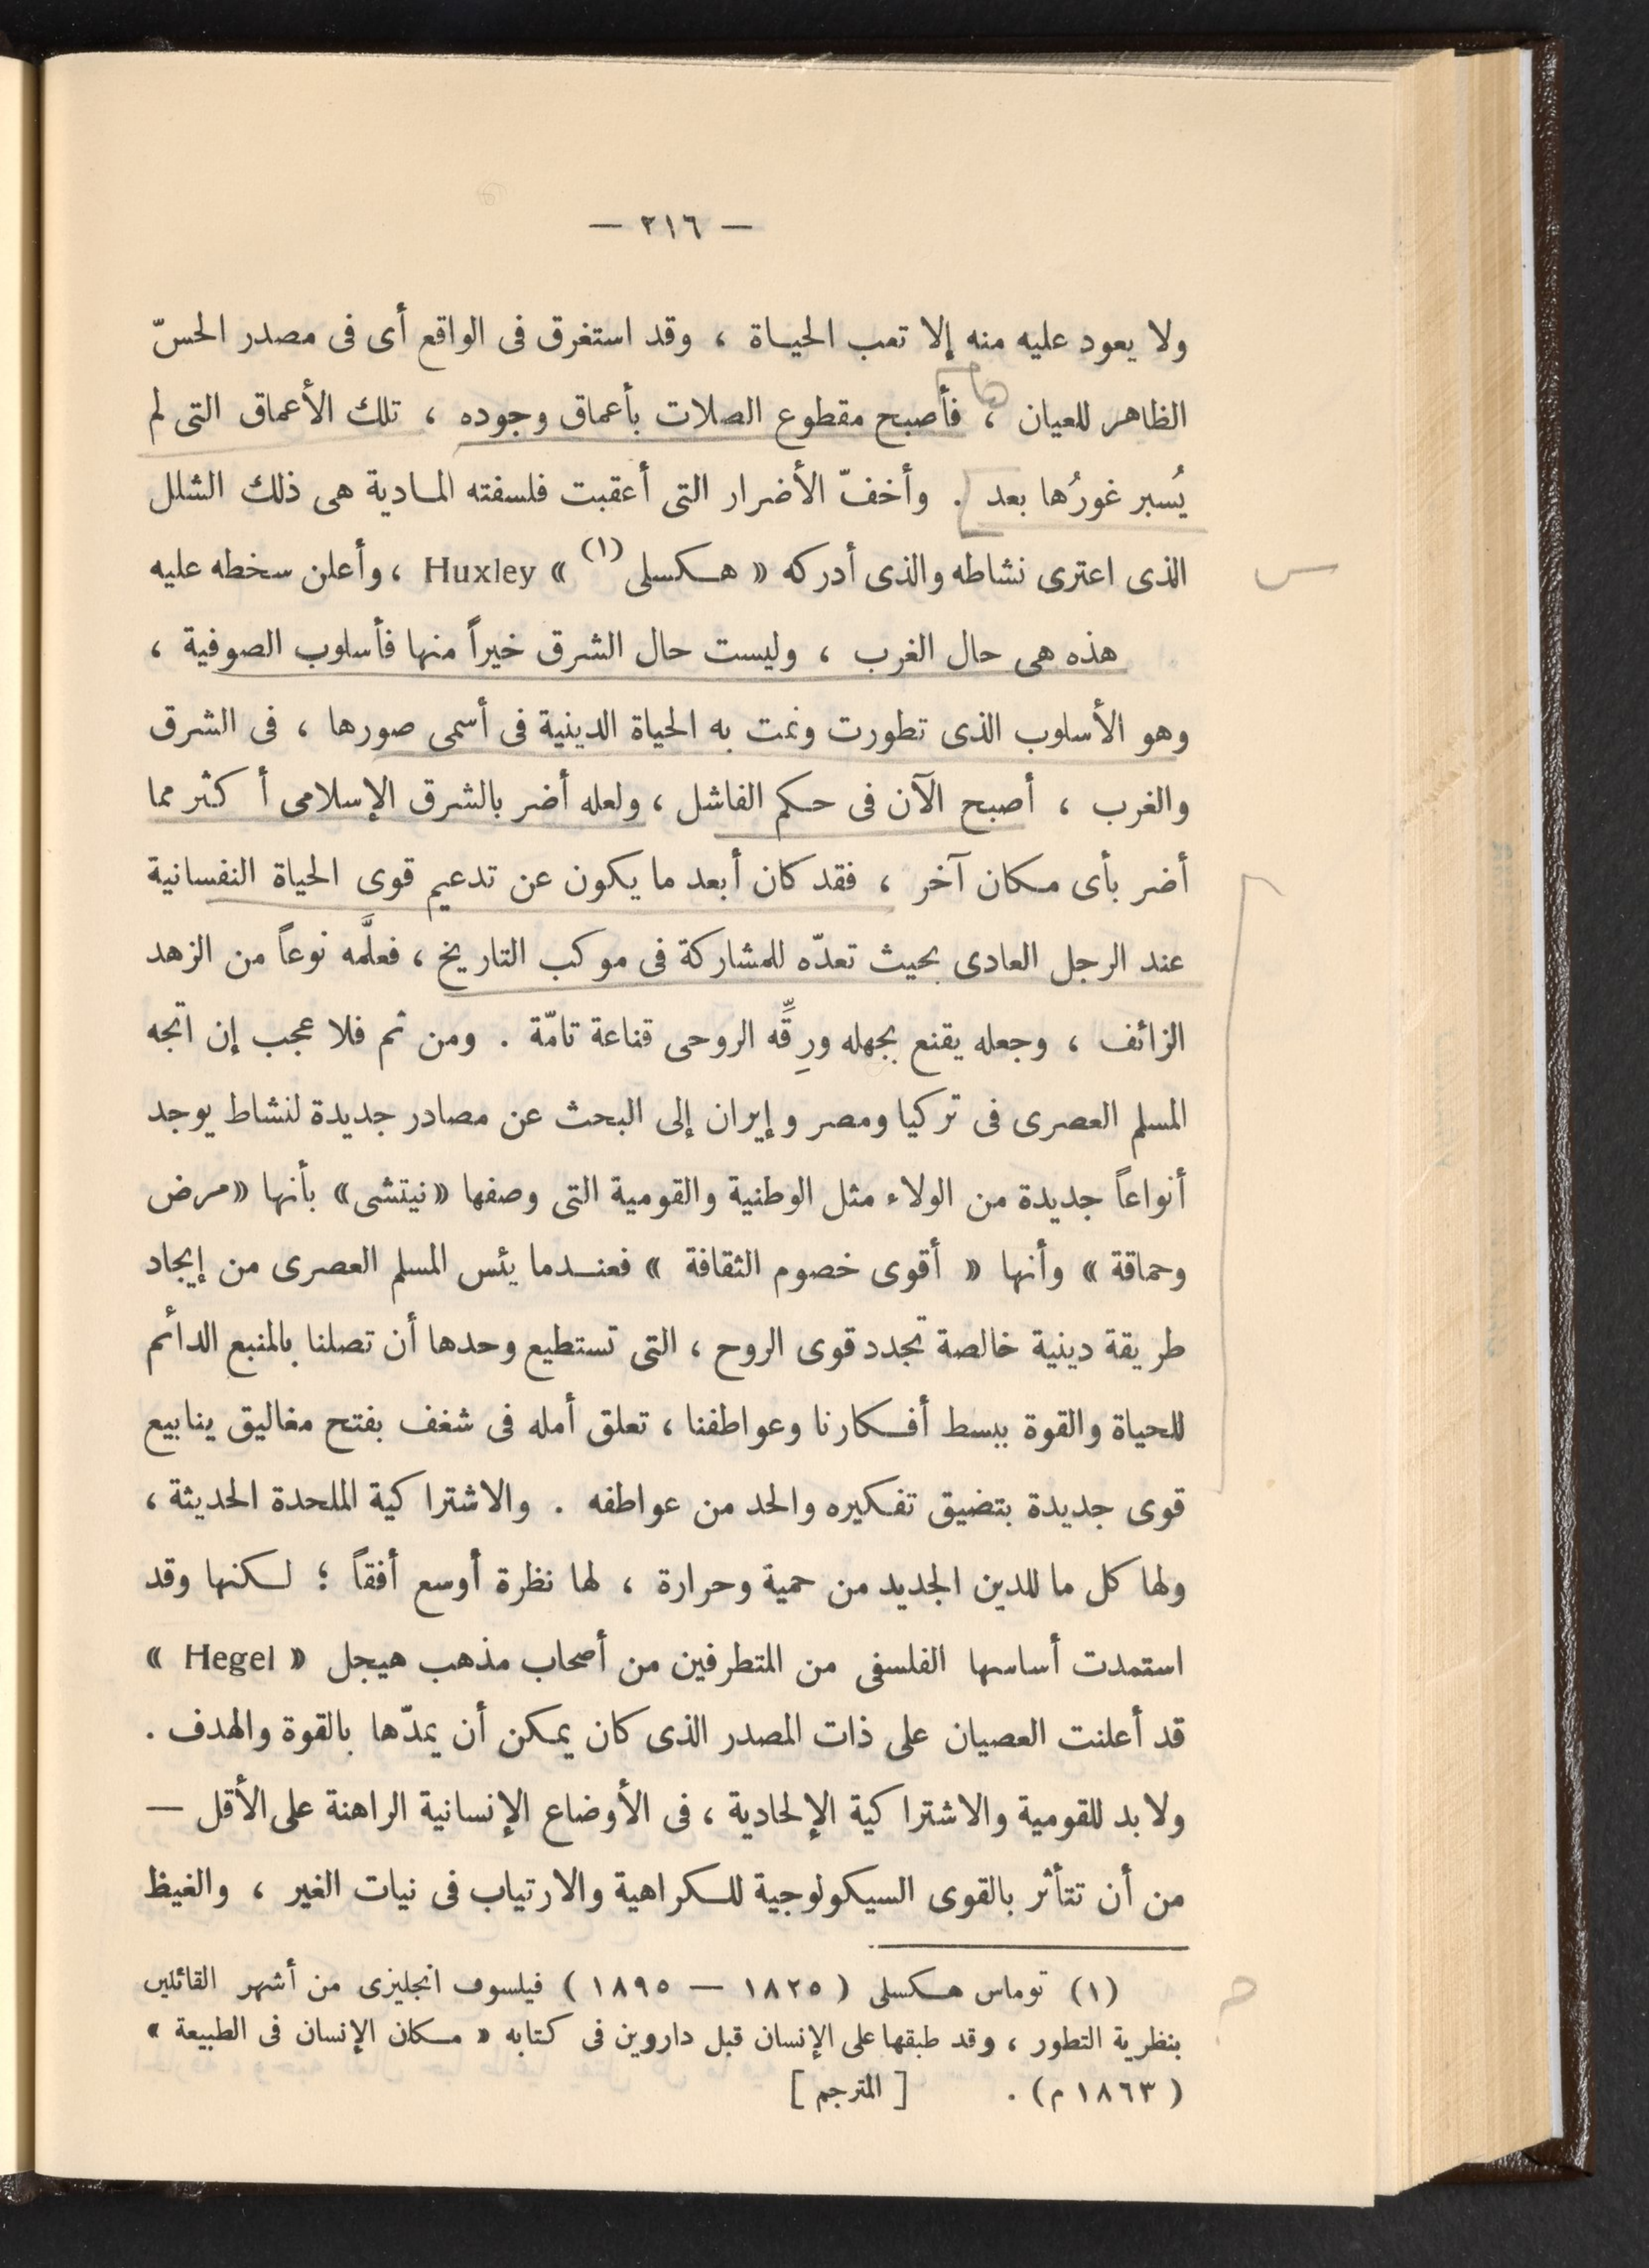 — ٢١٦ —
ولا يعود عليه منه إلا تعب الحيـاة ، وقد استغرق فى الواقع أى فى مصدر الحسّ
الظاهر للعيان ، فأصبح مقطوع الصلات بأعماق وجوده ، تلك الأعماق التى لم
يُسبر غورُها بعد . وأخفّ الأضرار التى أعقبت فلسفته المـادية هى ذلك الشلل
الذى اعترى نشاطه والذى أدركه « هـكسلى (١) » Huxley ، وأعلن سخطه عليه
هذه هى حال الغرب ، وليست حال الشرق خيراً منها فأسلوب الصوفية ،
وهو الأسلوب الذى تطورت ونمت به الحياة الدينية فى أسمى صورها ، فى الشرق
والغرب ، أصبح الآن فى حـكم الفاشل ، ولعله أضر بالشرق الإسلامى أكثر مما
أضر بأى مـكان آخر ، فقد كان أبعد ما يكون عن تدعيم قوى الحياة النفسانية
عند الرجل العادى بحيث تعدّه للمشاركة فى موكب التاريخ ، فعلَّمه نوعاً من الزهد
الزائف ، وجعله يقنع بجهله ورِقِّه الروحى قناعة تامّة . ومن ثم فلا عجب إن اتجه
المسلم العصرى فى تركيا ومصر وإيران إلى البحث عن مصادر جديدة لنشاط يوجد
أنواعاً جديدة من الولاء مثل الوطنية والقومية التى وصفها «نيتشى» بأنها «مرض
وحماقة » وأنها « أقوى خصوم الثقافة » فعنـدما يئس المسلم العصرى من إيجاد
طريقة دينية خالصة تجدد قوى الروح ، التى تستطيع وحدها أن تصلنا بالمنبع الدائم
للحياة والقوة ببسط أفـكارنا وعواطفنا ، تعلق أمله فى شغف بفتح مغاليق ينابيع
قوى جديدة بتضيق تفـكيره والحد من عواطفه . والاشتراكية الملحدة الحديثة ،
ولها كل ما للدين الجديد من حمية وحرارة ، لها نظرة أوسع أفقاً ؛ لـكنها وقد
استمدت أساسها الفلسفى من المتطرفين من أصحاب مذهب هيجل « Hegel »
قد أعلنت العصيان على ذات المصدر الذى كان يمـكن أن يمدّها بالقوة والهدف .
ولا بد للقومية والاشتراكية الإلحادية ، فى الأوضاع الإنسانية الراهنة على الأقل —
من أن تتأثر بالقوى السيكولوجية للـكراهية والارتياب فى نيات الغير ، والغيظ
(١) توماس هـكسلى ( ١٨٢٥ — ١٨٩٥ ) فيلسوف انجليزى من أشهر القائلين
بنظرية التطور ، وقد طبقها على الإنسان قبل داروين فى كتابه « مـكان الإنسان فى الطبيعة »
( ١٨٦٣ م ) . [ المترجم ]